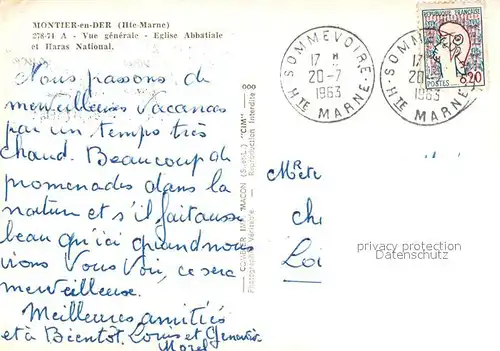 MONTIER-en-DER (Hte-Marne)
278-71 A - Vue générale - Eglise Abbatiale
et Haras National.
Nous passons de
merveilleuses vacances
par un temps très
chaud. Beaucoup de
promenades dans la
nature et s'il fait aussi
beau qu'ici quand nous
irons vous voir, ce sera
merveilleuse.
Meilleures amitiés
et à Bientôt. Louis et Geneviève
Morel
COMBIER IMP. MACON (S.-et-L.) "CIM"
Reproduction Interdite
SOMMEVOIRE
17 H
20-7
1963
HTE MARNE
SOMMEVOIRE
17
20-7
1963
HTE MARNE
REPUBLIQUE FRANÇAISE
POSTES 0,20
Mr et
ch
Loi
privacy protection
Datenschutz